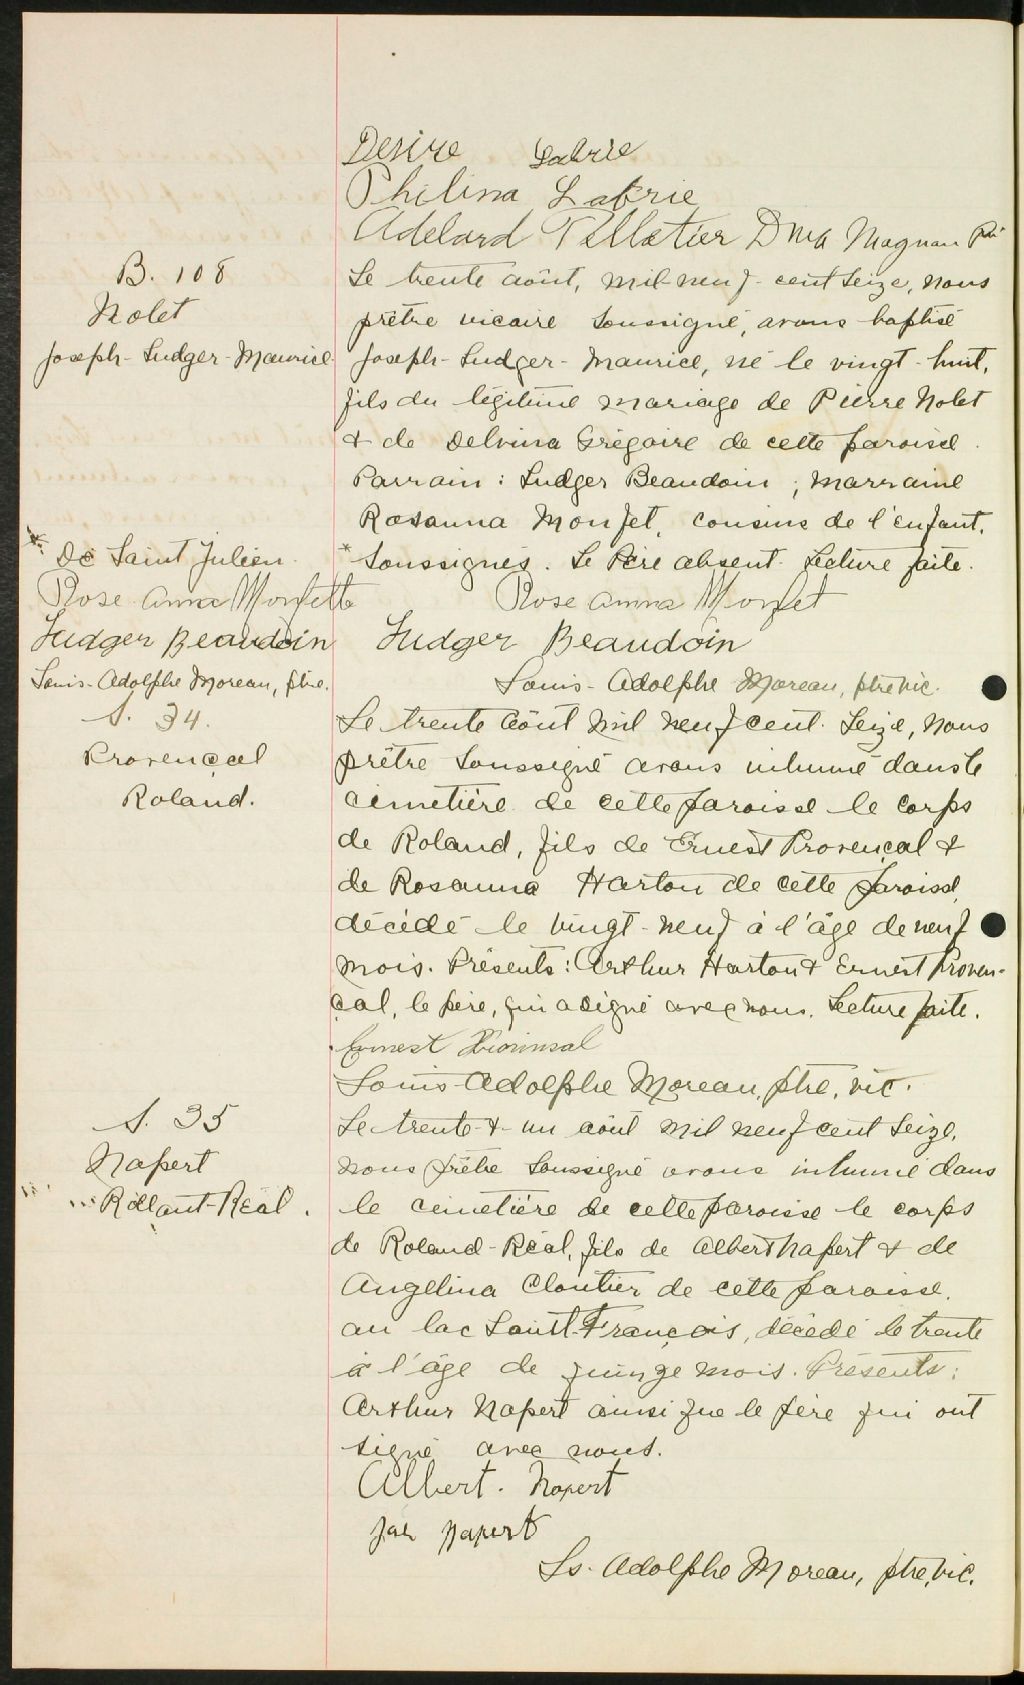 Desire Labrie
Philina Labrie
Adelard Pelletier D Magnan Ptre
B. 108
Nolet
Joseph-Ludger-Maurice
Le trente août, mil-neuf-cent seize, nous
prêtre vicaire soussigné, avons baptisé
Joseph-Ludger-Maurice, né le vingt-huit,
fils du légitime mariage de Pierre Nolet
& de Delvina Grégoire de cette paroisse.
Parrain : Ludger Beaudoin ; marraine
Rosanna Monfet, cousins de l'enfant,
* soussignés. Le Père absent. Lecture faite.
* De Saint Julien.
Rose anna Monfette
Ludger Beaudoin
Louis-Adolphe Moreau, ptre.
Rose anna Monfet
Ludger Beaudoin
Louis-Adolphe Moreau, ptre vic.
S. 34.
Provençal
Roland.
Le trente août mil neuf cent seize, nous
prêtre soussigné avons inhumé dans le
cimetière de cette paroisse le corps
de Roland, fils de Ernest Provençal &
de Rosanna Harton de cette paroisse,
décédé le vingt-neuf à l'âge de neuf
mois. Présents : Arthur Harton & Ernest Proven-
çal, le père, qui a signé avec nous. Lecture faite.
Ernest
Louis-Adolphe Moreau, ptre, vic.
S. 35
Napert
Rolland-Réal.
Le trente-&-un août mil neuf cent seize,
nous prêtre soussigné avons inhumé dans
le cimetière de cette paroisse le corps
de Roland-Réal, fils de Albert Napert & de
Angelina Cloutier de cette paroisse,
au lac Saint-François, décédé le trente
à l'âge de quinze mois. Présents :
Arthur Napert ainsi que le père qui ont
signé avec nous.
Albert. Napert
Napert
Ls. Adolphe Moreau, ptre, vic.